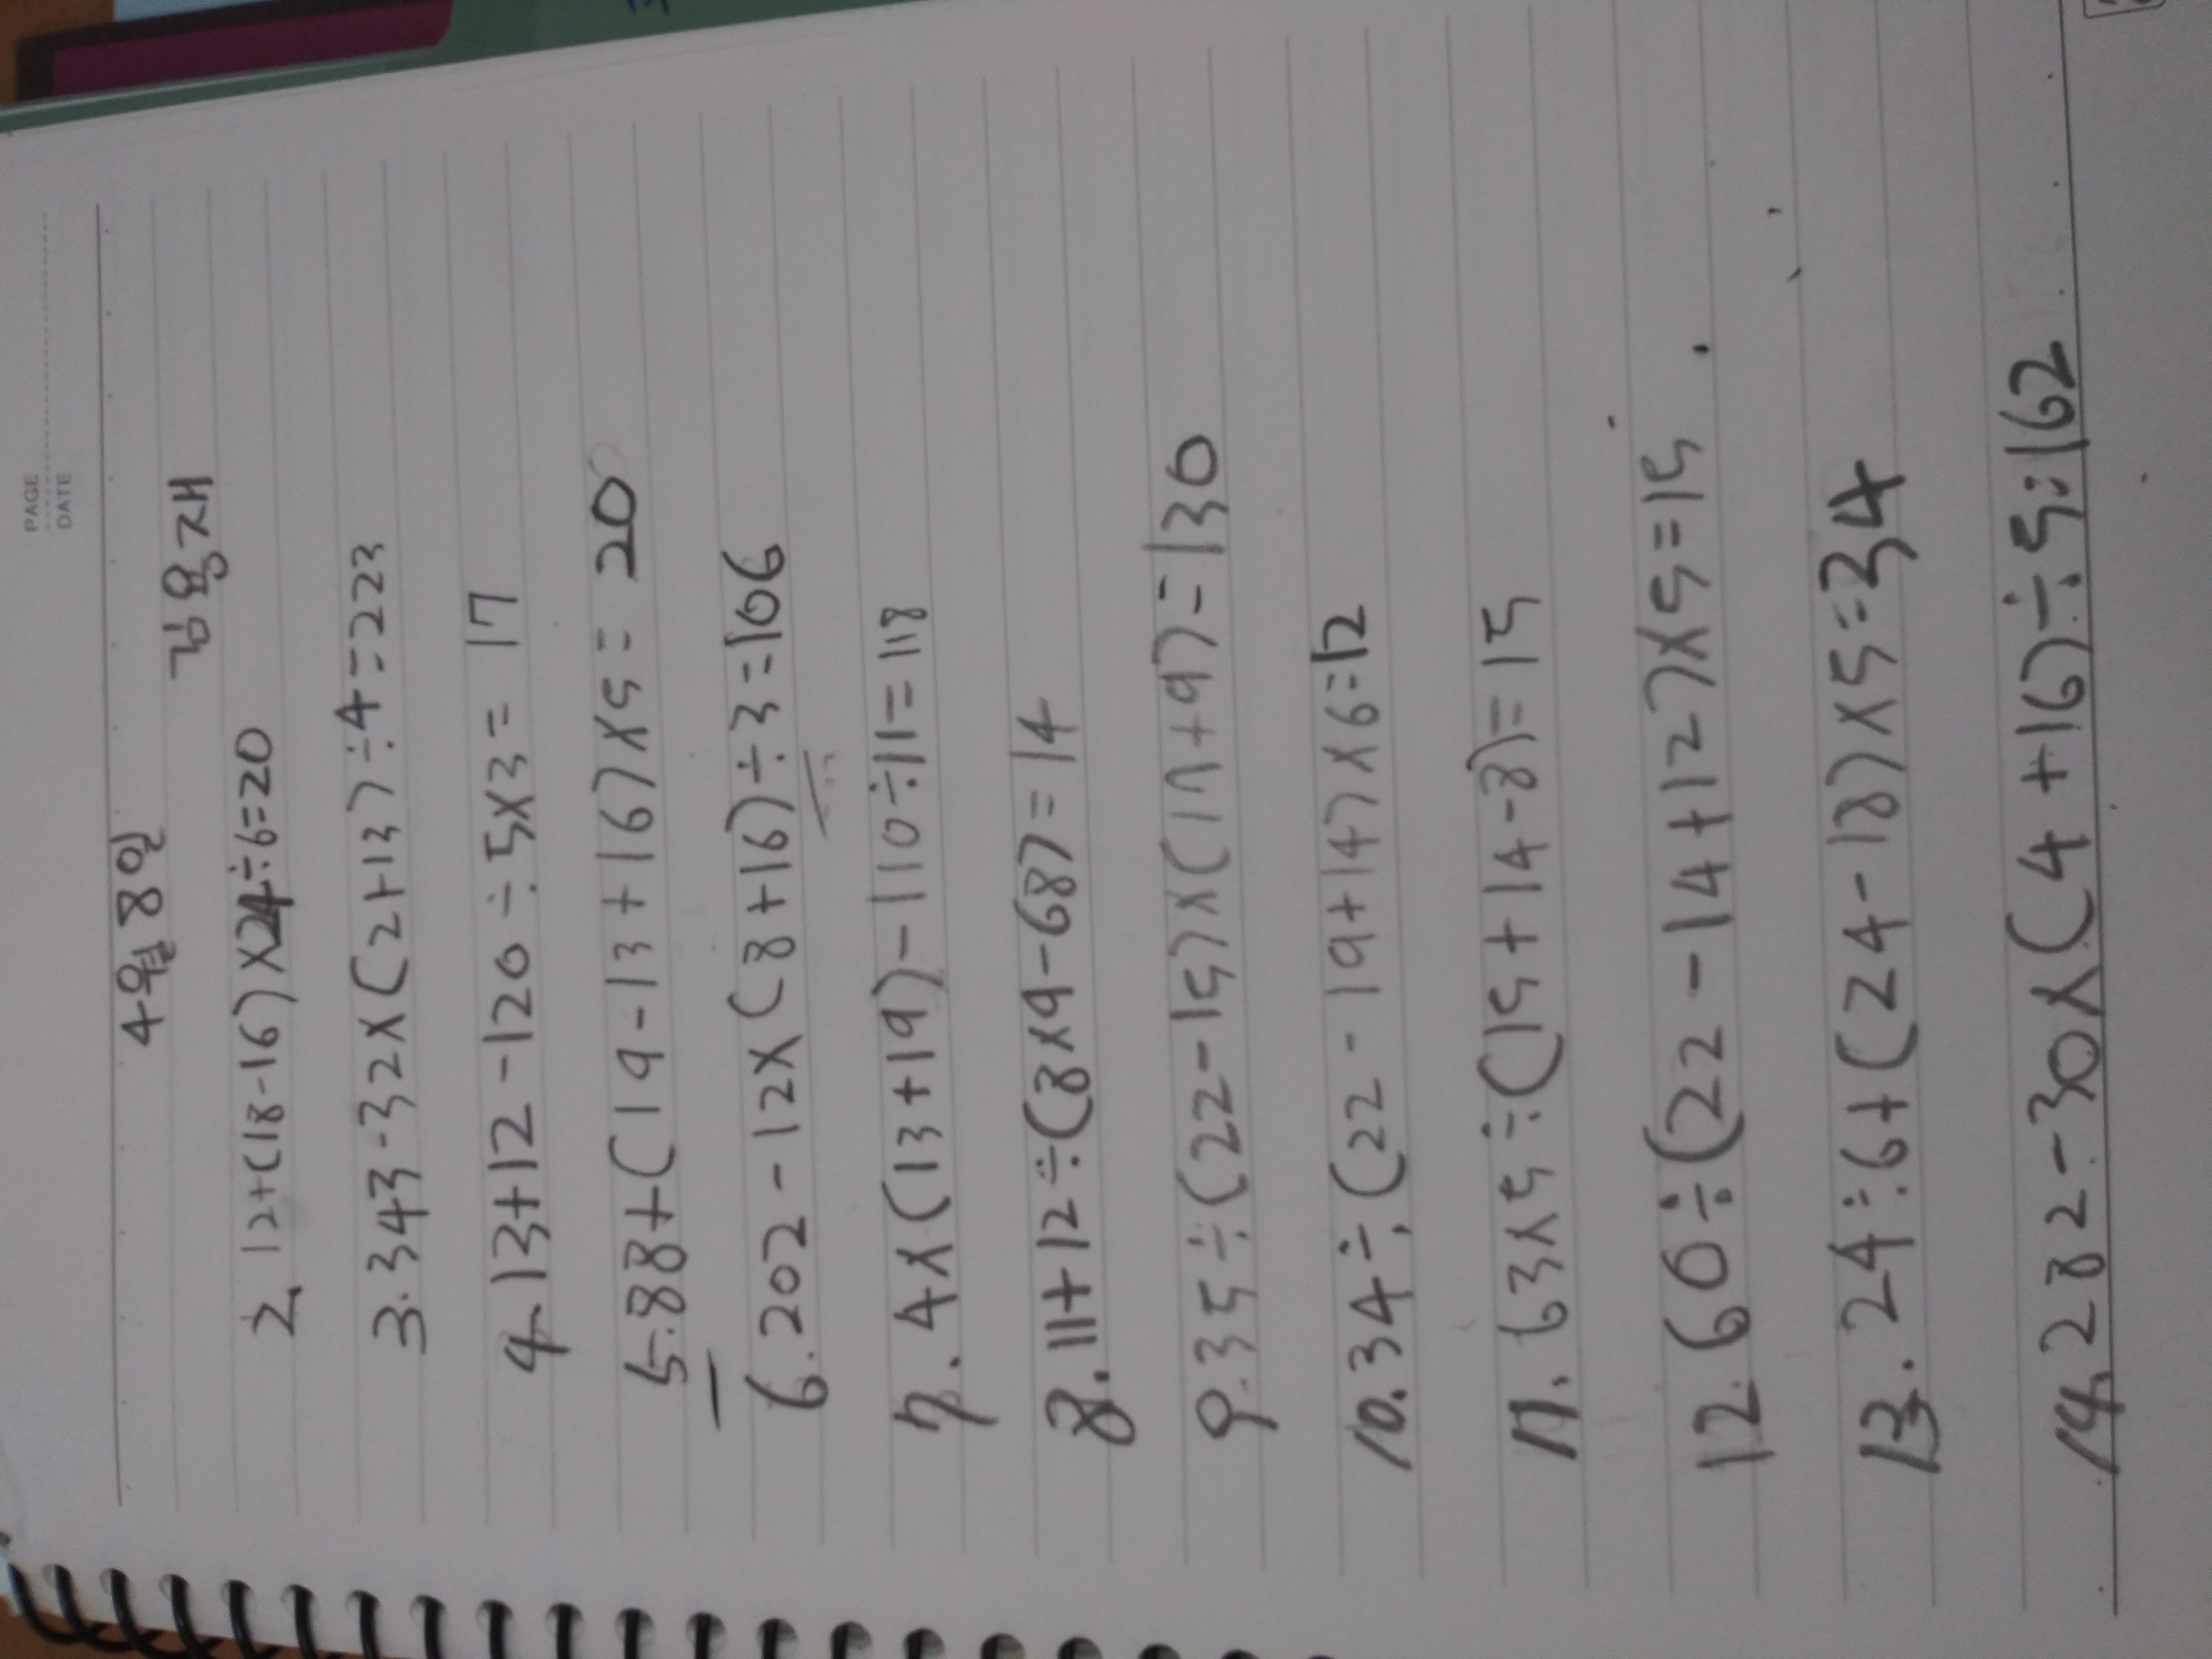 PAGE
DATE
4월 8일
김용재
2. 12+(18-16)×24÷6=20
3. 343-32×(2+13)÷4=223
4. 13+12-120÷5×3= 17
5. 88+(19-13+16)×5= 20
6. 202-12×(8+16)÷3=106
7. 4×(13+19)-110÷11=118
8. 11+12÷(8×9-68)=14
9. 35÷(22-15)×(17+9)=130
10. 34÷(22-19+14)×6=12
11. 63×5÷(15+14-8)=15
12. 60÷(22-14+12)×5=15
13. 24÷6+(24-18)×5=34
14. 282-30×(4+16)÷5=162